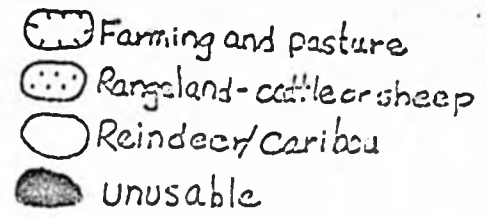 Farming and pasture
Rangeland - cattle or sheep
Reindeer/Caribou
unusable